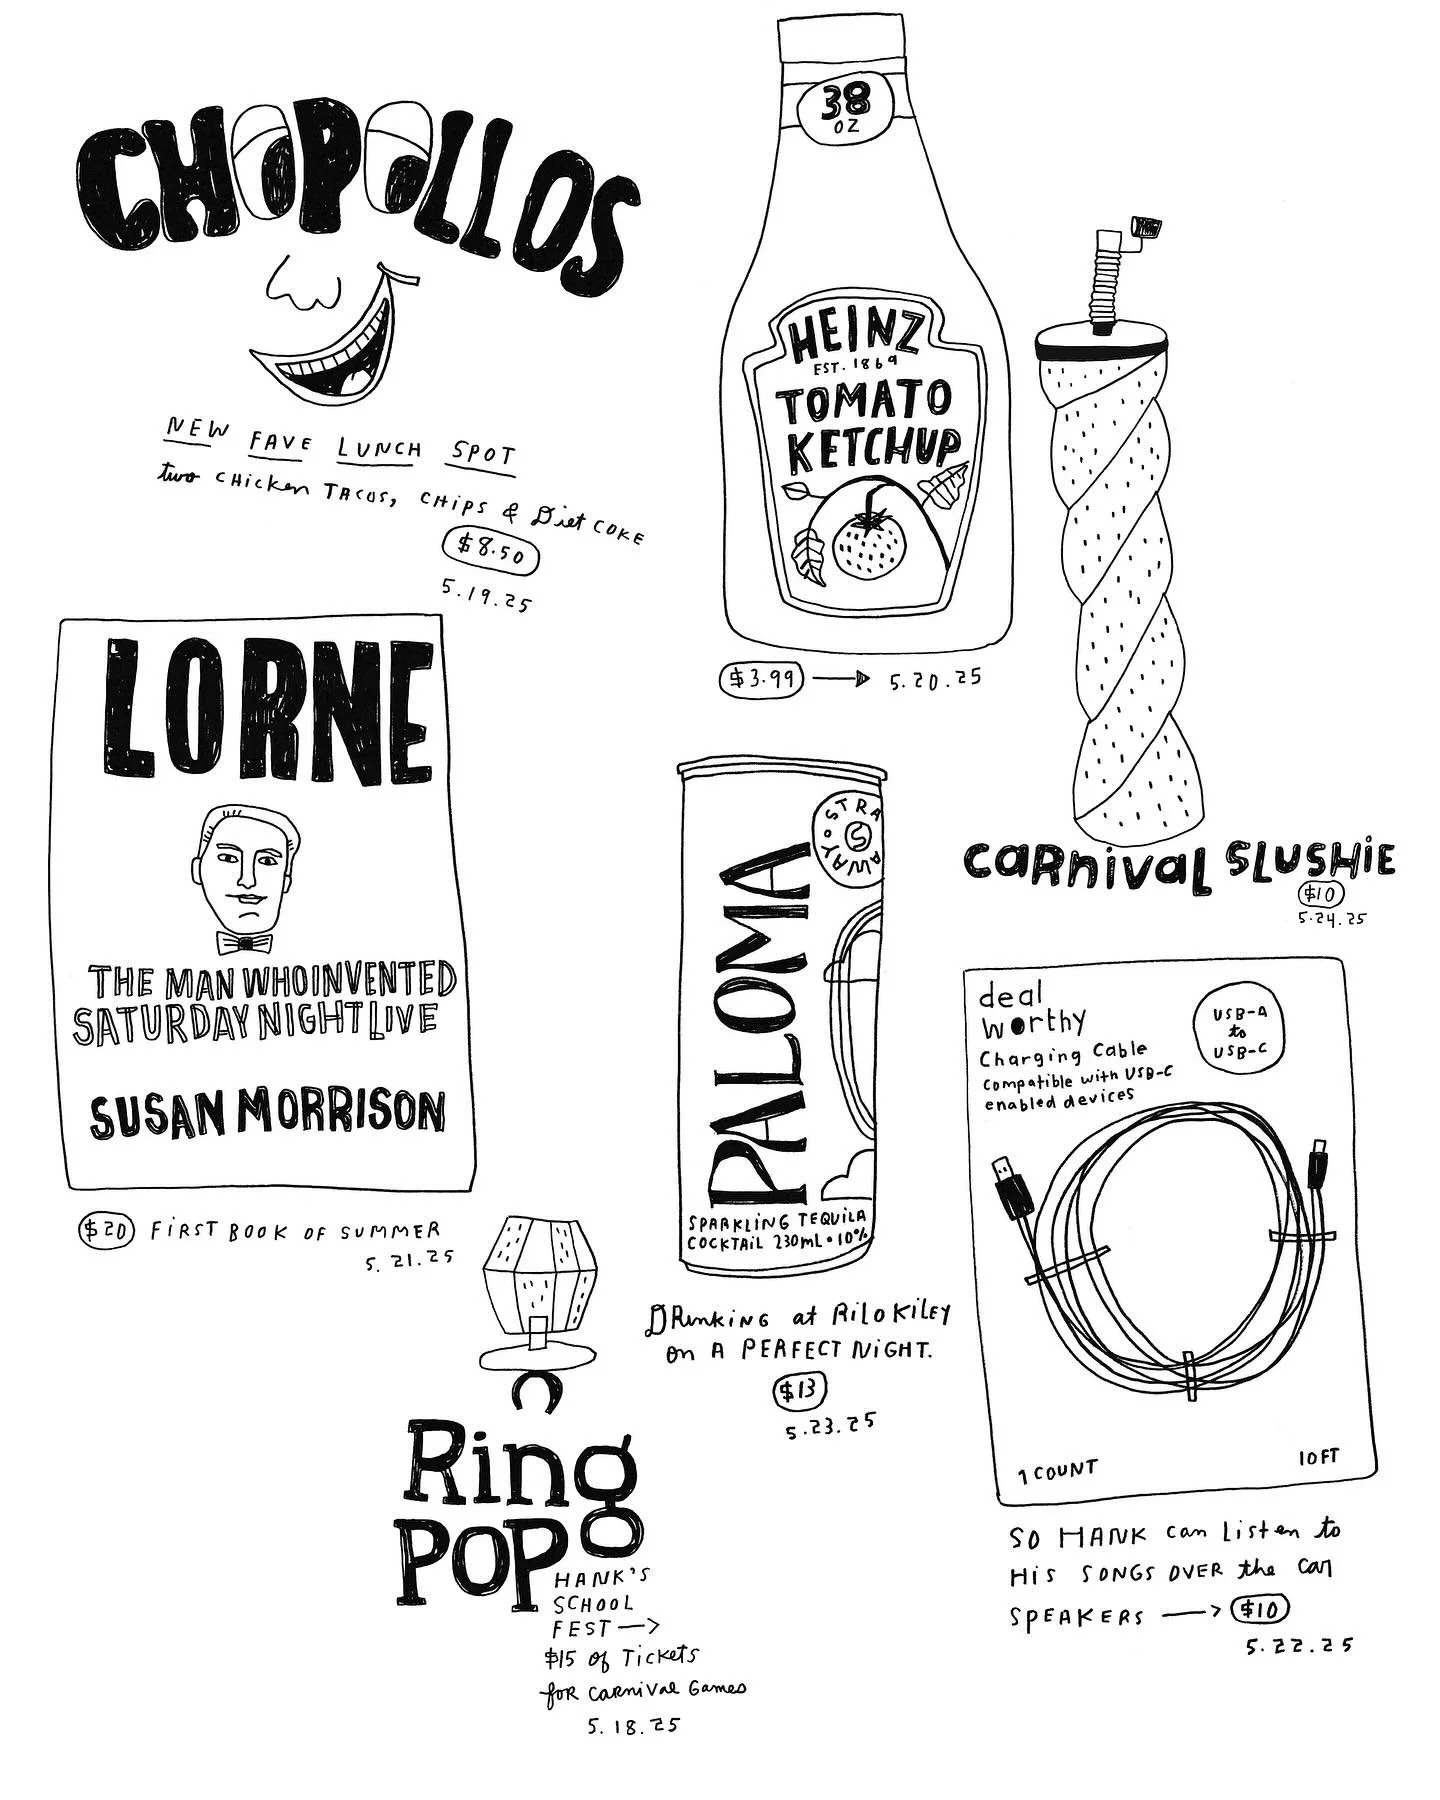 CHOPOLLOS
NEW FAVE LUNCH SPOT
two CHicken TACOS, CHIPS & Diet COKE
$8.50
5.19.25
38
OZ
HEINZ
EST. 1869
TOMATO
KETCHUP
$3.99
5.20.25
CARNIVAL SLUSHiE
$10
5.24.25
LORNE
THE MAN WHO INVENTED
SATURDAY NIGHT LIVE
SUSAN MORRISON
$20 FIRST BOOK OF SUMMER
5.21.25
STRAWAY
S
PALOMA
SPARKLING TEQUILA
COCKTAIL 230mL • 10%
DRinkiNG at RiLO KiLEY
on A PERFECT NIGHT.
$13
5.23.25
deal
worthy
Charging Cable
compatible with USB-C
enabled devices
USB-A
to
USB-C
1 COUNT
10FT
SO HANK can Listen to
HIS SONGS OVER the car
SPEAKERS → $10
5.22.25
Ring
POP
HANK'S
SCHOOL
FEST →
$15 of Tickets
for Carnival Games
5.18.25